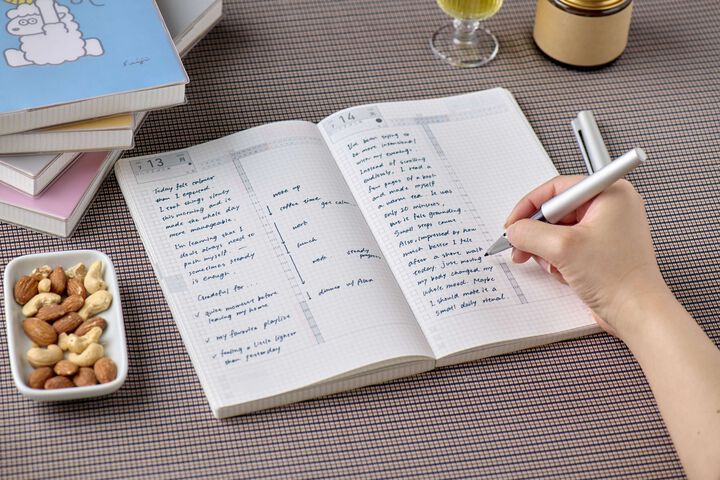 7
13
Today felt calmer
than I expected.
I took things slowly
this morning and it
made the whole day
more manageable.
I'm learning that I
don't always need to
push myself —
sometimes steady
is enough.
Grateful for...
✓ quiet moments before
leaving my home.
✓ my favorite playlist
✓ feeling a little lighter
than yesterday
wake up
coffee time, get calm
work
lunch
work steady
progress
dinner w/
7
14
I've been trying to
be more intentional
with my evenings.
Instead of scrolling
endlessly, I read a
few pages of a book
and made myself
a warm tea. It was
only 20 minutes,
but it felt grounding.
Small steps count.
Also, impressed by how
much better I felt
after a short walk
today. Just moving
my body changed my
whole mood. Maybe
I should make it a
small daily ritual.